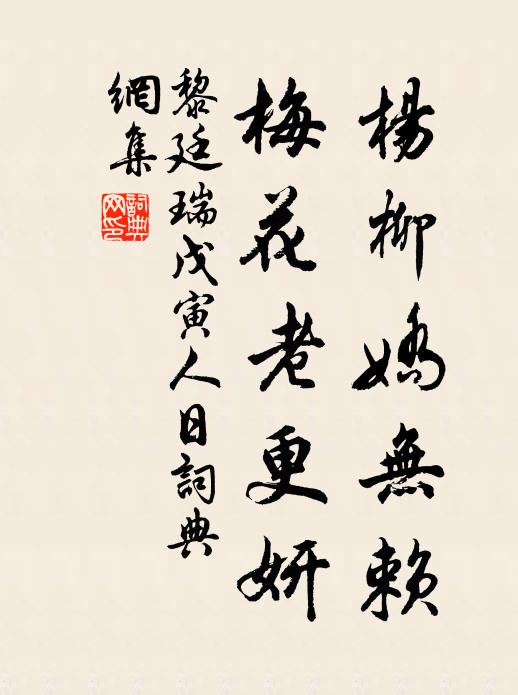 楊柳嬌無賴
梅花老更妍
黎廷瑞戊寅人日詞典
網集
詞典網印